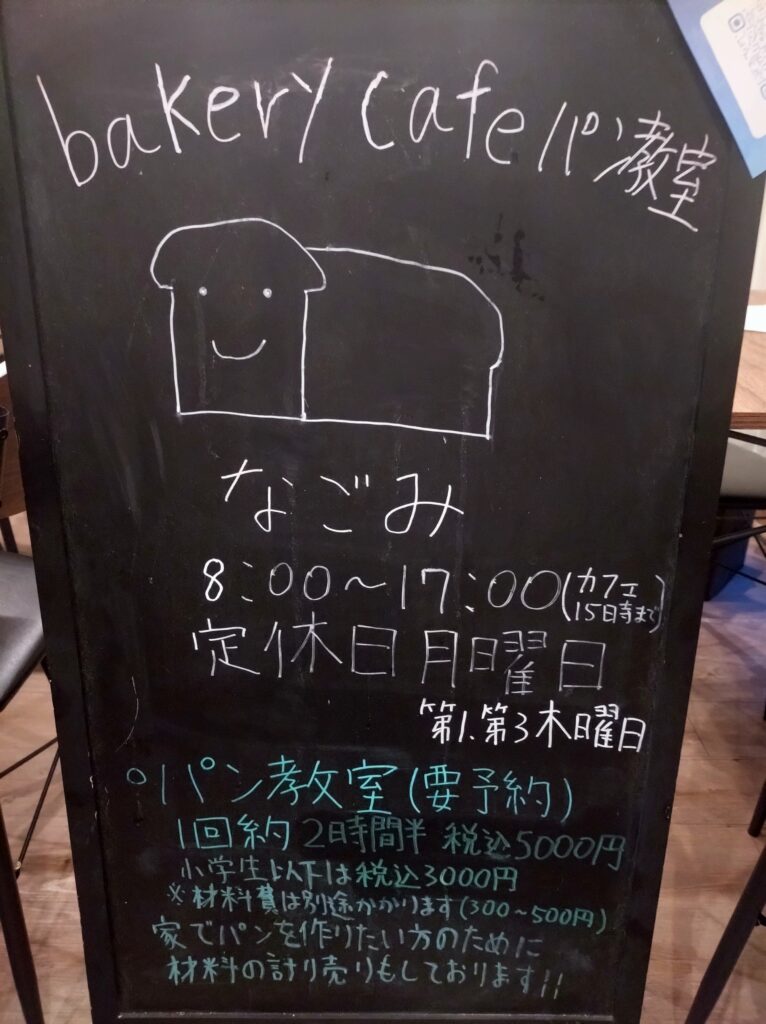 bakery cafe パン教室
なごみ
8:00～17:00(カフェ15時まで)
定休日月曜日
第1.第3木曜日
○パン教室(要予約)
1回約2時間半 税込5000円
小学生以下は税込3000円
※材料費は別途かかります(300～500円)
家でパンを作りたい方のために
材料の計り売りもしております!!